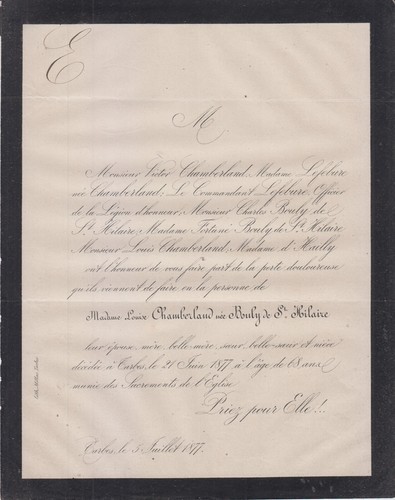 E
M
Monsieur Victor Chamberland, Madame Lefébure
née Chamberland; Le Commandant Lefébure Officier
de la Légion d'honneur; Monsieur Charles Bouly de
St. Hilaire; Madame Fortuné Bouly de St. Hilaire
Monsieur Louis Chamberland; Madame d'Hailly
ont l'honneur de vous faire part de la perte douloureuse
qu'ils viennent de faire en la personne de
Madame Louise Chamberland née Bouly de St. Hilaire
leur épouse, mère, belle-mère, sœur, belle-sœur et nièce
décédée à Tarbes, le 21 Juin 1877 à l'âge de 68 ans
munie des Sacrements de l'Eglise.
Priez pour Elle!..
Tarbes, le 5 Juillet 1877.
Lith. Tarbes